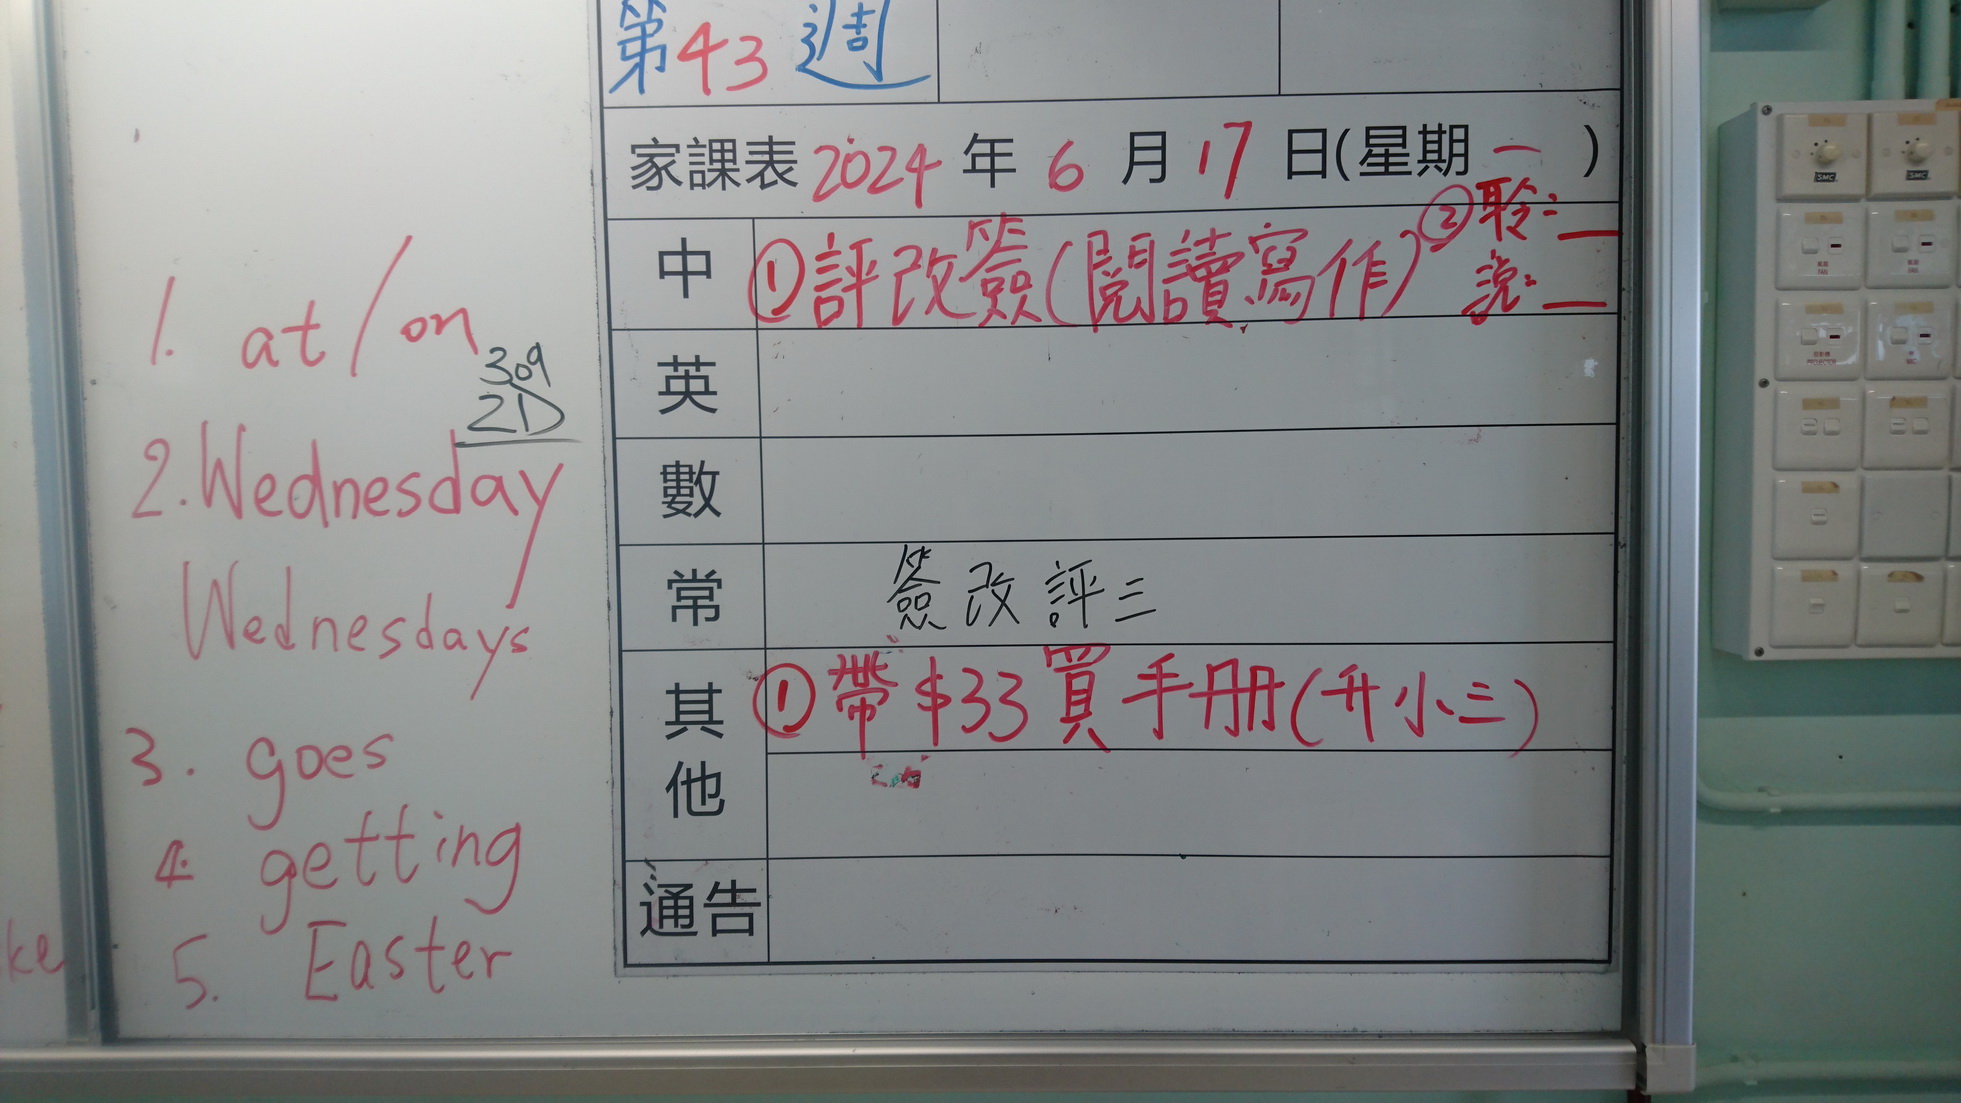 第43週
家課表 2024 年 6 月 17 日(星期 一 )
中 ①評改簽(閱讀寫作) ②聆:__
說:__
英
數
常 簽改評三
其他 ①帶$33買手册(升小三)
通告
1. at/on
309
2D
2. Wednesday
Wednesdays
3. goes
4. getting
5. Easter
ke
SMC
SMC
FAN
FAN
PROJECTOR